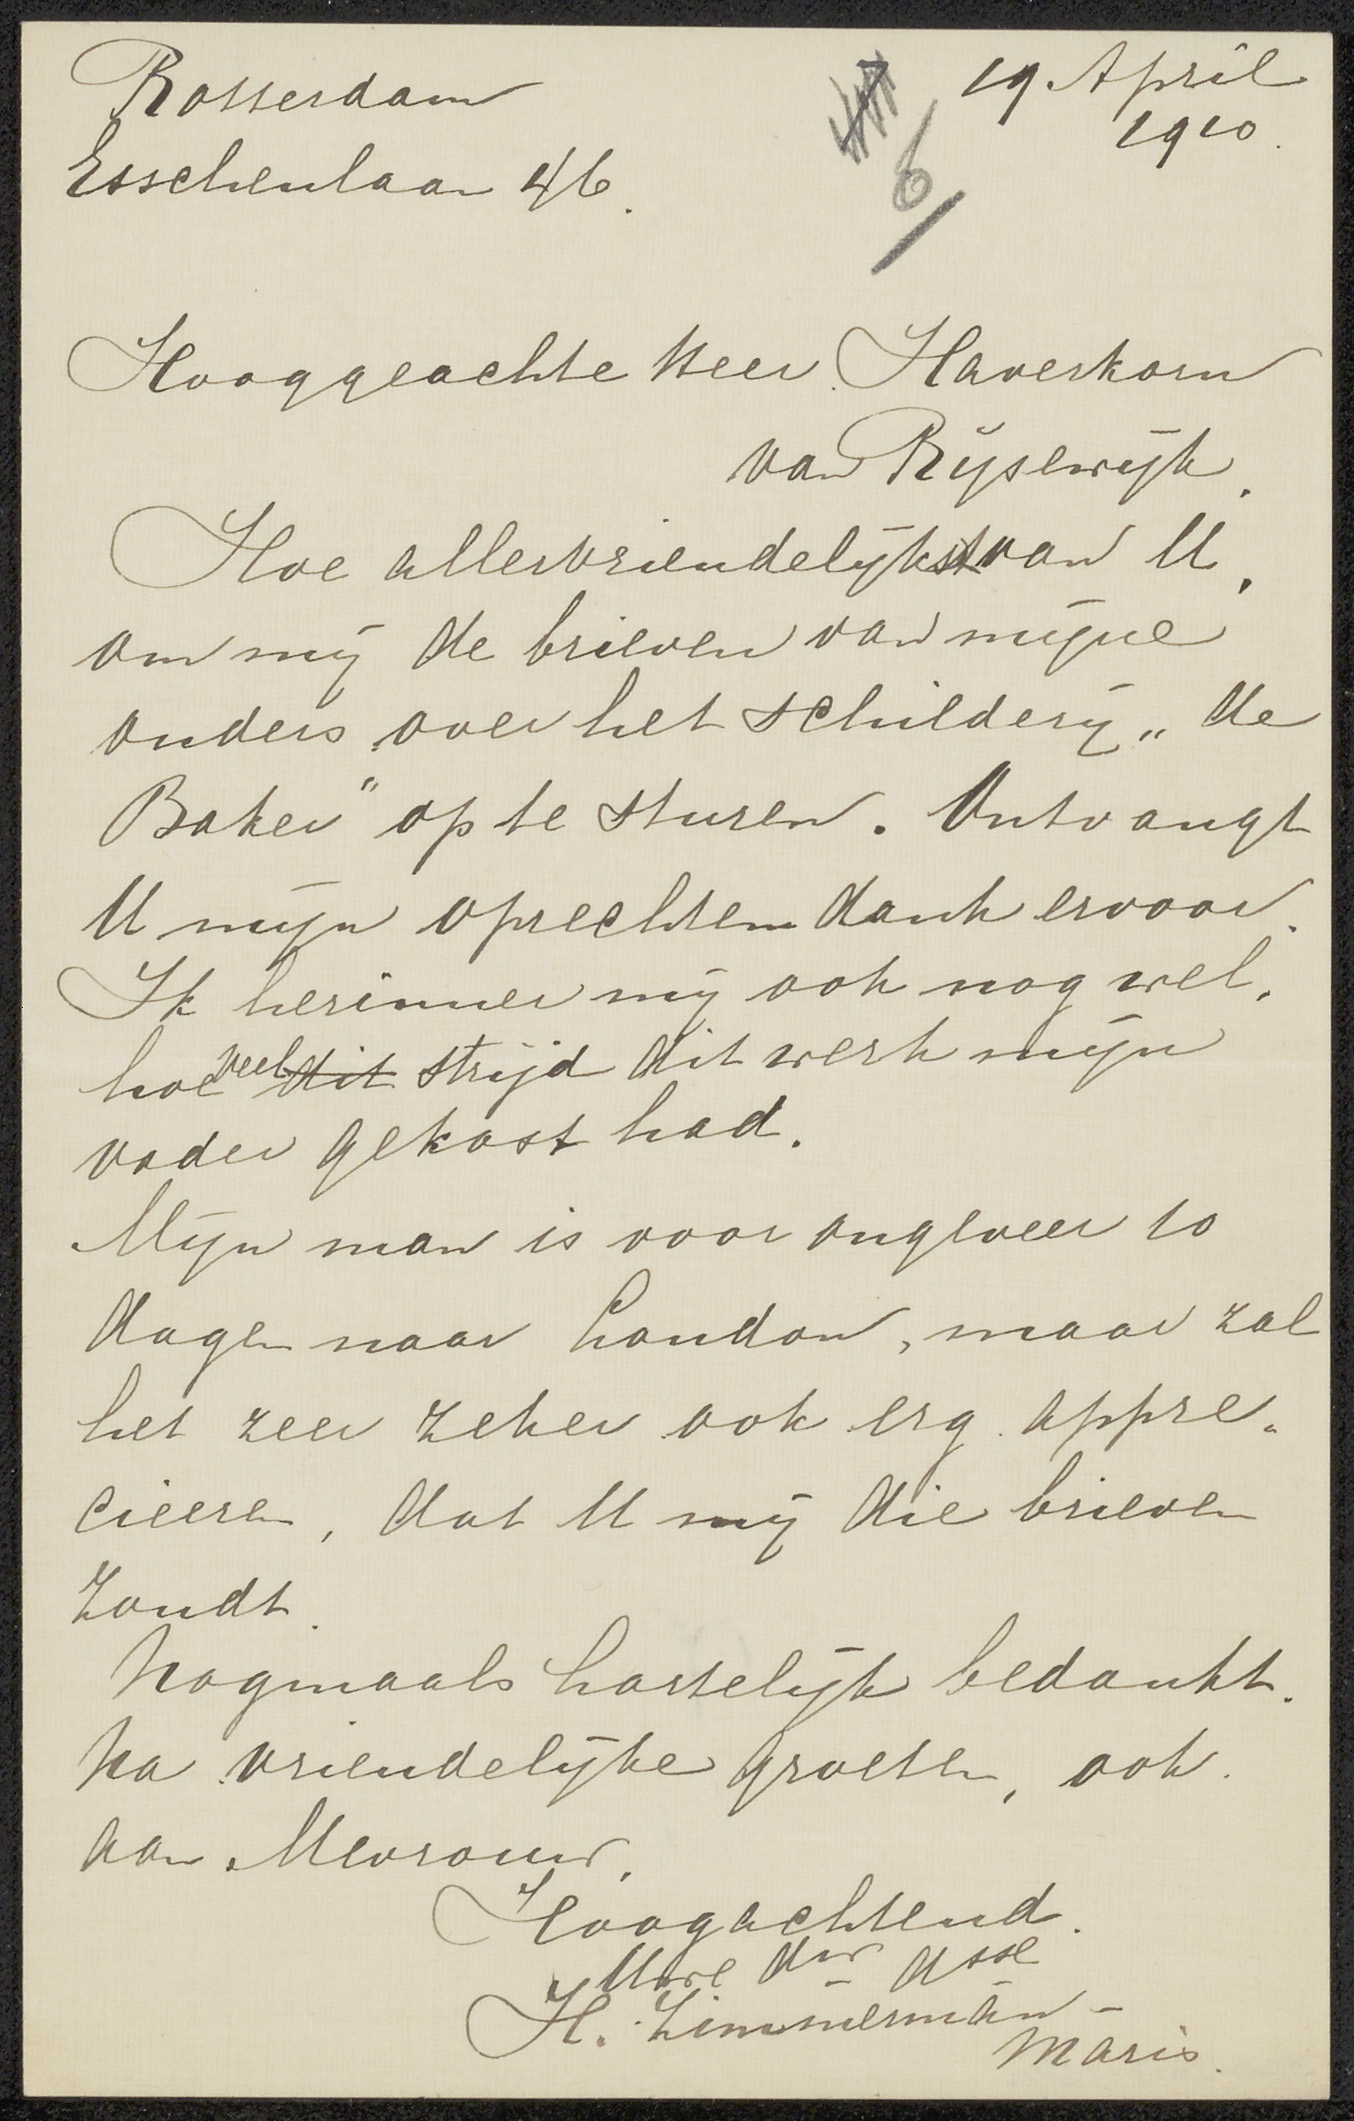 Rotterdam
19 April
1910.
Esschenlaan 46.
6
Hooggeachte Heer Haverkorn
van Rijsewijk.
Hoe allervriendelijkst van U,
om mij de brieven van mijne
ouders over het schilderij „de
Baker" op te sturen. Ontvangt
U mijn oprechten dank ervoor.
Ik herinner mij ook nog wel,
hoe veel dit strijd dit werk mijn
vader gekost had.
Mijn man is voor ongeveer 10
dagen naar London, maar zal
het zeer zeker ook erg appre-
cieeren, dat U mij die brieven
zondt.
Nogmaals hartelijk bedankt.
Na vriendelijke groeten, ook
aan Mevrouw,
Hoogachtend.
Uwe dw dsse
H. Zimmerman-
Maris.